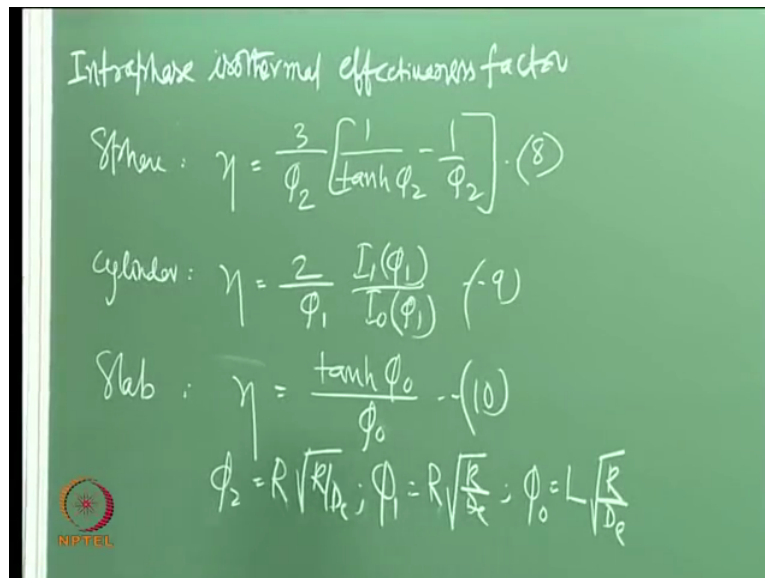 Intraphase isothermal effectiveness factor
Sphere : η = 3/φ₂ [1/tanh φ₂ - 1/φ₂] . (8)
Cylinder : η = 2/φ₁ I₁(φ₁)/I₀(φ₁) (-9)
Slab : η = tanh φ₀/φ₀ --(10)
φ₂ = R√k/Dₑ ; φ₁ = R√k/Dₑ ; φ₀ = L√k/Dₑ
NPTEL